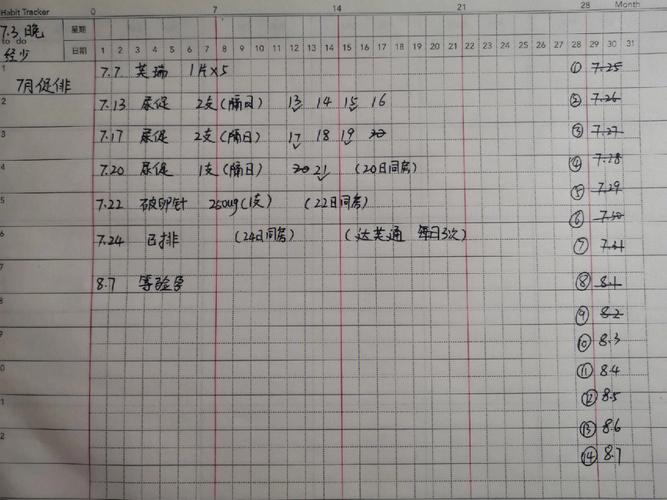 Habit Tracker 0 7 14 21 28 Month
7.3 晚 星期
to do 日期 1 2 3 4 5 6 7 8 9 10 11 12 13 14 15 16 17 18 19 20 21 22 23 24 25 26 27 28 29 30 31
经少
1 7.7 芙瑞 1片×5 ① 7.25
7月促排
2 7.13 尿促 2支(隔日) 13 14 15 16 ② 7.26
3 7.17 尿促 2支(隔日) 17 18 19 20 ③ 7.27
4 7.20 尿促 1支(隔日) 20 21 (20日同房) ④ 7.28
⑤ 7.29
5 7.22 破卵针 250ug(1支) (22日同房) ⑥ 7.30
6 7.24 已排 (24日同房) (达芙通 每日3次) ⑦ 7.31
7 8.7 等验孕 ⑧ 8.1
⑨ 8.2
⑩ 8.3
0 ⑪ 8.4
1 ⑫ 8.5
⑬ 8.6
2 ⑭ 8.7